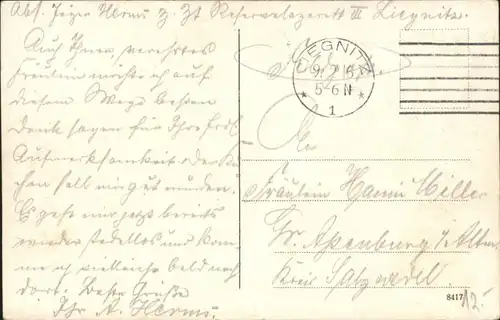 Abs. Jäger Herms z. Zt Reservelazarett III Liegnitz.
Auch Ihnen, verehrtes
Fräulein möchte ich auf
diesem Wege besten
Dank sagen für Ihre
Aufmerksamkeit. der Ku-
chen soll mir gut munden.
Es geht mir jetzt bereits
wieder tadellos und kom-
me ich vielleicht bald nach
dort. Beste Grüße
Ihr A. Herms.
LIEGNITZ
5-6 N
* 1 *
An
Fräulein Hanni Müller
Gr. Apenburg i. Altm.
Kreis Salzwedel
8417
12.-